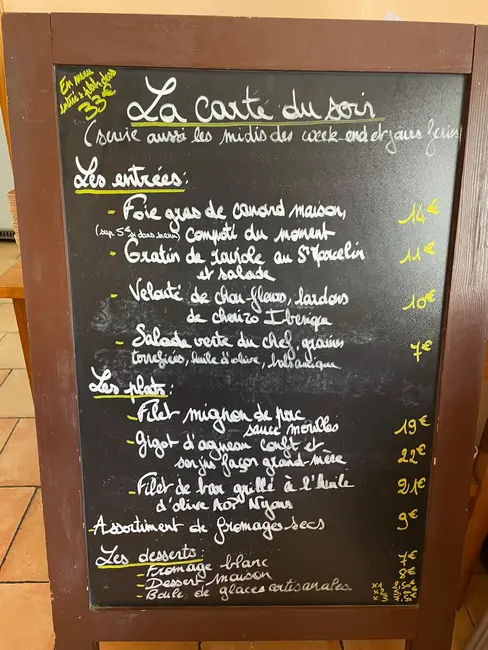 En menu
entrée plat dess
33€
La carte du soir
(servie aussi les midis des week-end et jours fériés)
Les entrées:
- Foie gras de canard maison, 14€
(sup 5€ si dans menu) Compoti du moment
- Gratin de raviole au St Marcelin 11€
et salade
- Velouté de chou-fleurs, lardons 10€
de chorizo Iberique
- Salade verte du chef, graines 7€
torréfiées, huile d'olive, balsamique
Les plats:
- Filet mignon de porc 19€
sauce morilles
- Gigot d'agneau confit et 22€
son jus façon grand-mère
- Filet de bar grillé à l'huile 21€
d'olive AOP Nyons
- Assortiment de fromages secs 9€
Les desserts:
- Fromage blanc
- Dessert maison
- Boule de glaces artisanales